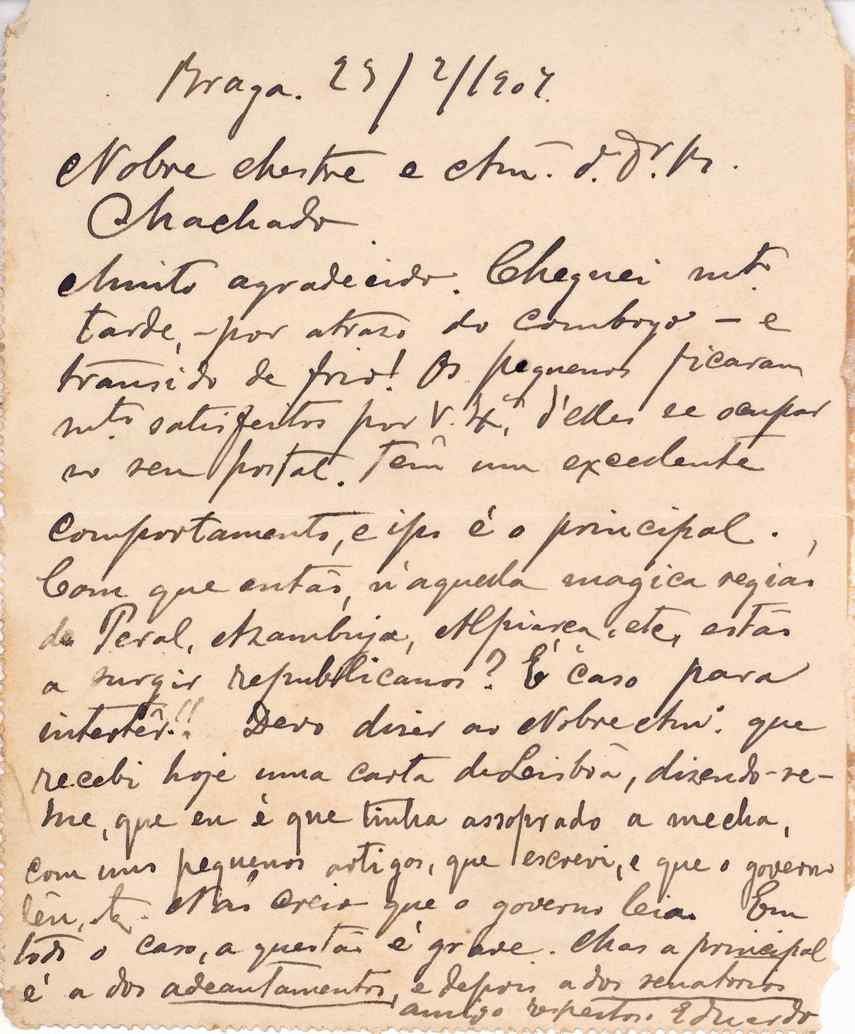 Braga. 25/2/1907.
Nobre Mestre e Am.º d. Dr. B.
Machado
Muito agradecido. Cheguei mto.
tarde, - por atrazo do comboyo - e
transido de frio! Os pequenos ficaram
mto. satisfeitos por V. Ex.ª d'elles se ocupar
no seu postal. Têm um excellente
comportamento, e isso é o principal.
Com que então, n'aquella magica região
do Peral, Azambuja, Alpiarça, etc, estão
a surgir republicanos? É caso para
Devo dizer ao Nobre Am.º que
recebi hoje uma carta de Lisboa, dizendo-se-
me, que eu é que tinha assoprado a mecha,
com uns pequenos artigos, que escrevi, e que o governo
lêu, etc. Não creio que o governo leia. Em
todo o caso, a questão é grave. Mas a principal
é a dos adeantamentos, e depois a dos senatorios
amigo respeitoso Eduardo